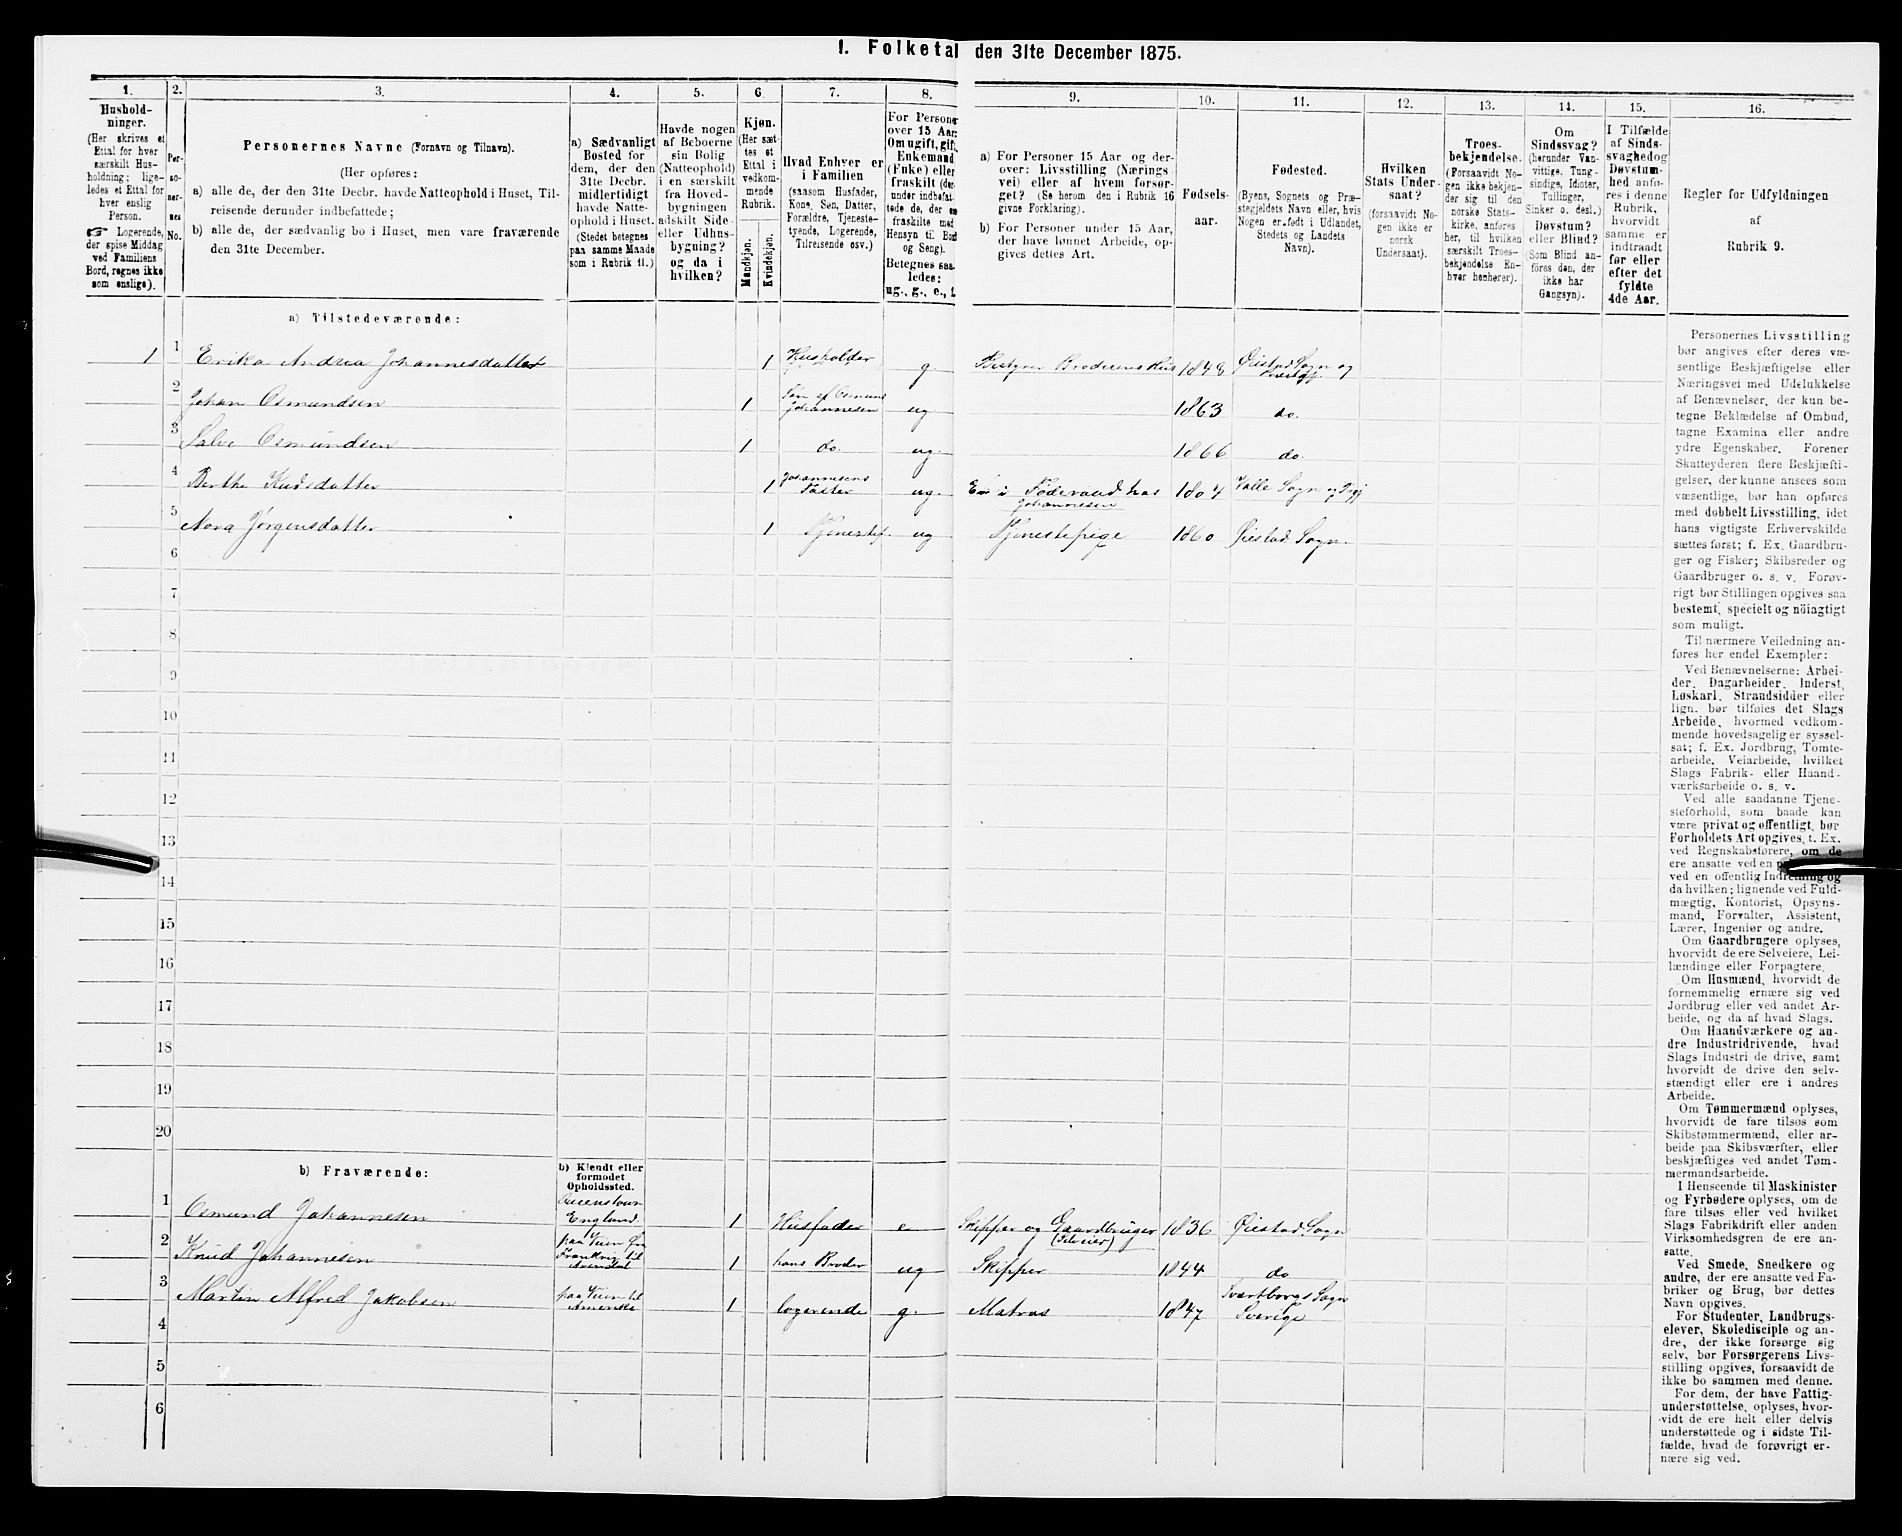 1. Folketal den 31te December 1875.
1. 2. 3. 4. 5. 6. 7. 8. 9. 10. 11. 12. 13. 14. 15. 16.
Hushold-
ninger.
(Her skrives et
Ettal for hver
særskilt Hus-
holdning; lige-
ledes et Ettal for
hver enslig
Person.
☞ Logerende,
der spise Middag
ved Familiens
Bord, regnes ikke
som enslige).
Per-
so-
ner-
nes
No.
Personernes Navne (Fornavn og Tilnavn).
(Her opføres:
a) alle de, der den 31te Decbr. havde Natteophold i Huset, Til-
reisende derunder indbefattede;
b) alle de, der sædvanlig bo i Huset, men vare fraværende
den 31te December.
a) Sædvanligt
Bosted for
dem, der den
31te Decbr.
midlertidigt
havde Natte-
ophold i Huset.
(Stedet betegnes
paa samme Maade
som i Rubrik 11.)
Havde nogen
af Beboerne
sin Bolig
(Natteophold)
i en særskilt
fra Hoved-
bygningen
adskilt Side-
eller Udhus-
bygning?
og da i
hvilken?
Kjøn.
(Her sæt-
tes et
Ettal i
vedkom-
mende
Rubrik.
Mandkjøn.
Kvindekjøn.
Hvad Enhver er
i Familien
(saasom Husfader,
Kone, Søn, Datter,
Forældre, Tjeneste-
tyende, Logerende,
Tilreisende osv.)
For Persone
over 15 Aar:
Om ugift, gift,
Enkemand
(Enke) eller
fraskilt (der-
under indbefat-
tede de, der ere
fraskilte med
Hensyn til Bord
og Seng).
Betegnes saa-
ledes:
ug., g., e., f.
a) For Personer 15 Aar og der-
over: Livsstilling (Nærings
vei) eller af hvem forsør-
get? (Se herom den i Rubrik 16
givne Forklaring).
b) For Personer under 15 Aar,
der have lønnet Arbeide, op-
gives dettes Art.
Fødsels-
aar.
Fødested.
(Byens, Sognets og Præ-
stegjeldets Navn eller, hvis
Nogen er født i Udlandet,
Stedets og Landets
Navn).
Hvilken
Stats Under-
saat?
(forsaavidt No-
gen ikke er
norsk
Undersaat).
Troes-
bekjendelse.
(Forsaavidt No-
gen ikke bekjen-
der sig til den
norske Stats-
kirke, anføres
her, til hvilken
særskilt Troes-
bekjendelse En-
hver henhører).
Om
Sindssvag?
(herunder Van-
vittige, Tung-
sindige, Idioter,
Tullinger,
Sinker o. desl.)
Døvstum?
eller Blind?
(Som Blind an-
føres den, der
ikke har
Gangsyn).
I Tilfælde
af Sinds-
svaghed og
Døvstum-
hed anfø-
res i denne
Rubrik,
hvorvidt
samme er
indtraadt
før eller
efter det
fyldte
4de Aar.
Regler for Udfyldningen
af
Rubrik 9.
a) Tilstedeværende:
1 1 Erika Andrea Johannesdatter 1 Husholder g Bestyrer Broderens Hus 1848 Øiestad Sogn og
2 Johan Osmundsen 1 Søn af Osmund Johannesen ug 1863 do.
3 Salve Osmundsen 1 do. ug. 1866 do.
4 Berthe Knudsdatter 1 Johannesens Faster ug. Er i Føderaad hos Johannesen Valle Sogn og
5 Nora Jørgensdatter 1 ug Tjenestepige 1860 Øiestad Sogn.
6
7
8
9
10
11
12
13
14
15
16
17
18
19
20
b) Fraværende:
b) Kjendt eller
formodet
Opholdssted.
1 Osmund Johannesen Queenstown England 1 Husfader e Skipper og Gaardbruger (Selveier) 1836 Øiestad Sogn
2 Knud Johannesen paa Veien fra Frankrig til Arendal 1 hans Broder ug Skipper 1844 do
3 Martin Alfred Jakobsen paa Veien til Amerika 1 logerende g. Matros 1847 Svartborgs Sogn Sverige
4
5
6
Personernes Livsstilling
bør angives efter deres væ-
sentlige Beskjæftigelse eller
Næringsvei med Udelukkelse
af Benævnelser, der kun be-
tegne Beklædelse af Ombud,
tagne Examina eller andre
ydre Egenskaber. Forener
Skatteyderen flere Beskjæfti-
gelser, der kunne ansees som
væsentlige, bør han opføres
med dobbelt Livsstilling, idet
hans vigtigste Erhvervskilde
sættes først; f. Ex. Gaardbru-
ger og Fisker; Skibsreder og
Gaardbruger o. s. v. Forøv-
rigt bør Stillingen opgives saa
bestemt, specielt og nöiagtigt
som muligt.
Til nærmere Veiledning an-
føres her endel Exempler:
Ved Benævnelserne: Arbei-
der, Dagarbeider, Inderst,
Løskarl, Strandsidder eller
lign. bør tilføies det Slags
Arbeide, hvormed vedkom-
mende hovedsagelig er syssel-
sat; f. Ex. Jordbrug, Tomte-
arbeide, Veiarbeide, hvilket
Slags Fabrik- eller Haand-
værksarbeide o. s. v.
Ved alle saadanne Tjene-
steforhold, som baade kan
være privat og offentligt, bør
Forholdets Art opgives, t. Ex.
ved Regnskabsførere, om de
ere ansatte ved en
ved en offentlig Indretning og
da hvilken; lignende ved Fuld-
mægtig, Kontorist, Opsyns-
mand, Forvalter, Assistent,
Lærer, Ingeniør og andre.
Om Gaardbrugere oplyses,
hvorvidt de ere Selveiere, Lei-
lændinge eller Forpagtere.
Om Husmænd, hvorvidt de
fornemmelig ernære sig ved
Jordbrug eller ved andet Ar-
beide, og da af hvad Slags.
Om Haandværkere og an-
dre Industridrivende, hvad
Slags Industri de drive, samt
hvorvidt de drive den selv-
stændigt eller ere i andres
Arbeide.
Om Tømmermænd oplyses,
hvorvidt de fare tilsøs som
Skibstømmermænd, eller ar-
beide paa Skibsværfter, eller
beskjæftiges ved andet Tøm-
mermandsarbeide.
I Henseende til Maskinister
og Fyrbødere oplyses, om de
fare tilsøs eller ved hvilket
Slags Fabrikdrift eller anden
Virksomhedsgren de ere an-
satte.
Ved Smede, Snedkere og
andre, der ere ansatte ved Fa-
briker og Brug, bør dettes
Navn opgives.
For Studenter, Landbrugs-
elever, Skoledisciple og an-
dre, der ikke forsørge sig
selv, bør Forsørgerens Livs-
stilling opgives, forsaavidt de
ikke bo sammen med denne.
For dem, der have Fattig-
understøttelse, oplyses, hvor-
vidt de ere helt eller delvis
understøttede og i sidste Til-
fælde, hvad de forøvrigt er-
nære sig ved.